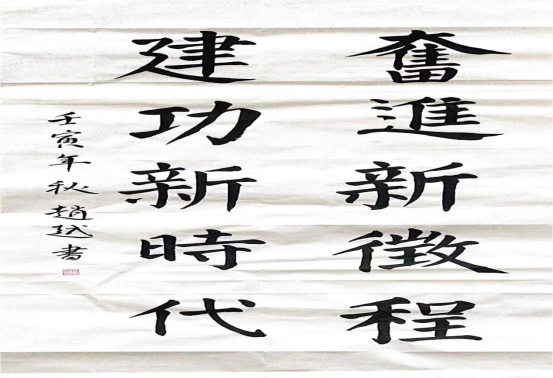 奮進新徵程
建功新時代
壬寅年秋趙斌書